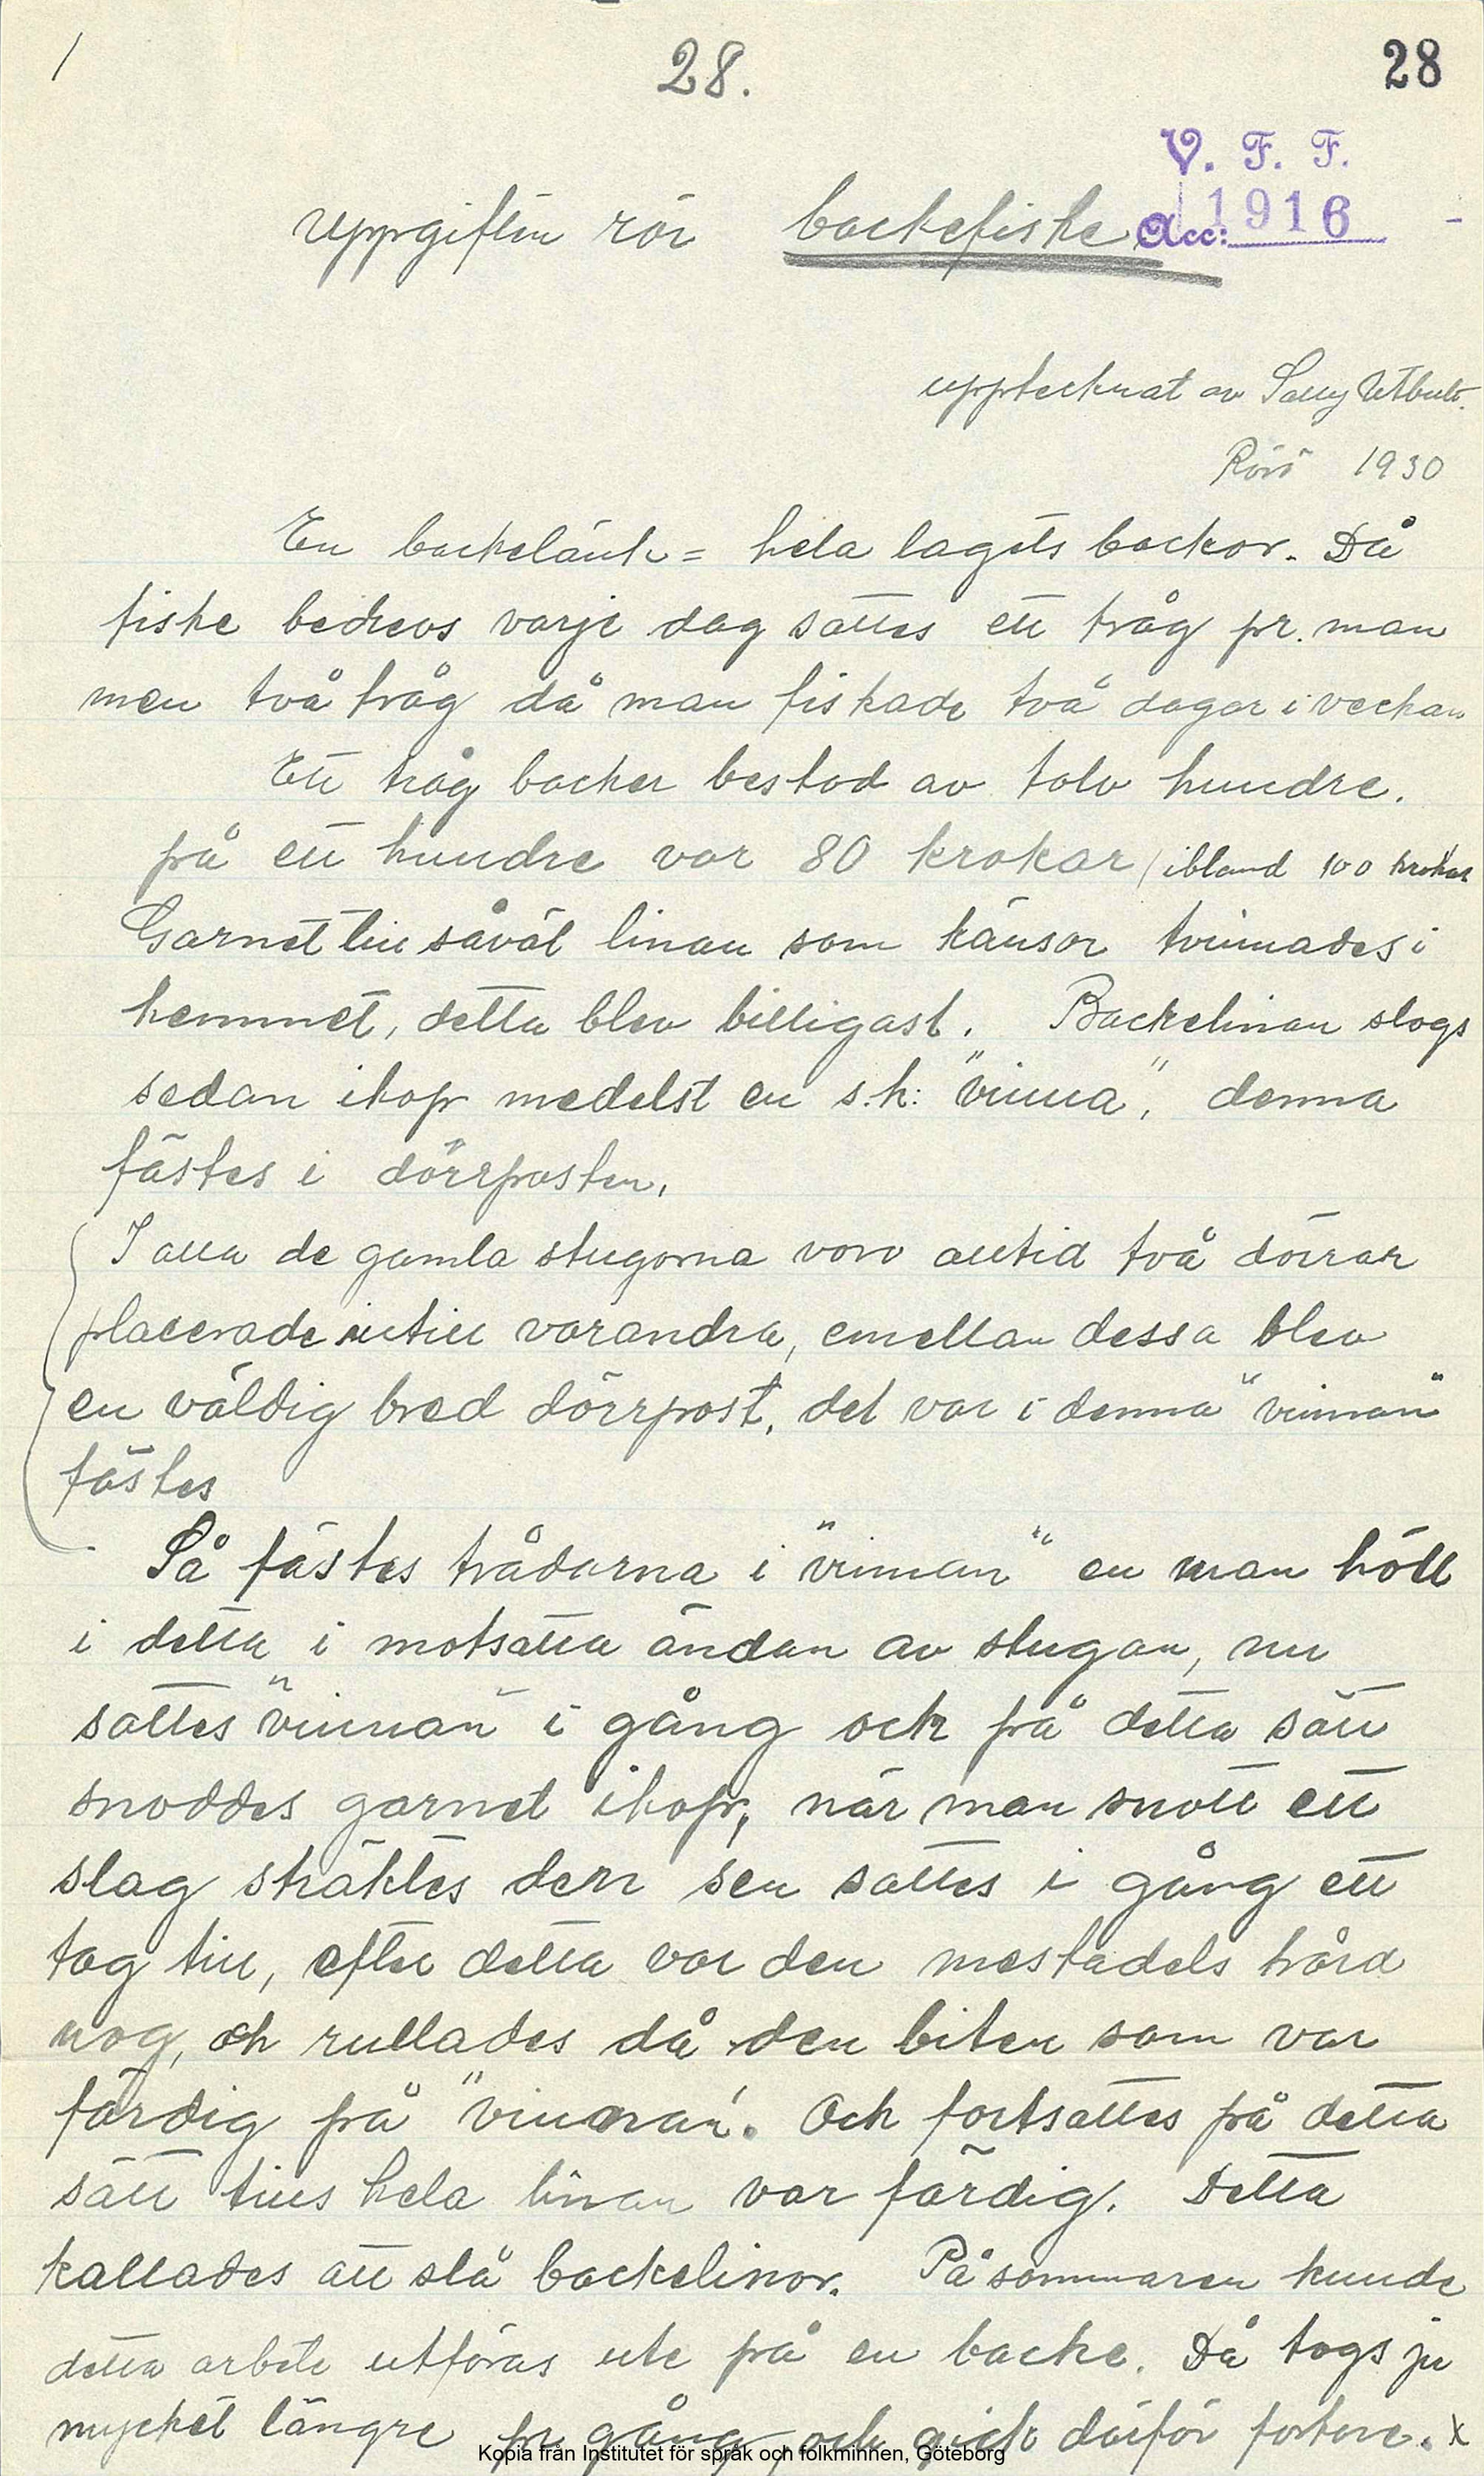 /
28.
28
V. F. F.
Acc: 1916
Uppgiften rör backefiske
upptecknat av Sally Utbult.
Rörö 1930
En backelänk = hela lagets backor. Då
fiske bedrevs varje dag sattes ett tråg pr. man
men två tråg då man fiskade två dagar i veckan
Ett tråg backer bestod av tolv hundre.
på ett hundre var 80 krokar (ibland 100 krokar
Garnet till såväl linan som tänsor tvinnades i
hemmet, detta blev billigast. Backelinan slogs
sedan ihop medelst en s.k: "vinna", denna
fästes i dörrposten.
I alla de gamla stugorna voro alltid två dörrar
placerade intill varandra, emellan dessa blev
en väldig bred dörrpost, det var i denna "vinnan"
fästes
Så fästes trådarna i "vinnan" en man höll
i detta i motsatta ändan av stugan, nu
sattes "vinnan" i gång och på detta sätt
snoddes garnet ihop, när man snott ett
slag sträktes den sen sattes i gång ett
tag till, efter detta var den mestadels hård
nog, och rullades då den biten som var
färdig på "vinnan". Och fortsattes på detta
sätt tills hela linan var färdig. Detta
kallades att slå backelinor. På sommaren kunde
detta arbete utföras ute på en backe. Då togs ju
mycket längre pr gång och gick därför fortare. x
Kopia från Institutet för språk och folkminnen, Göteborg